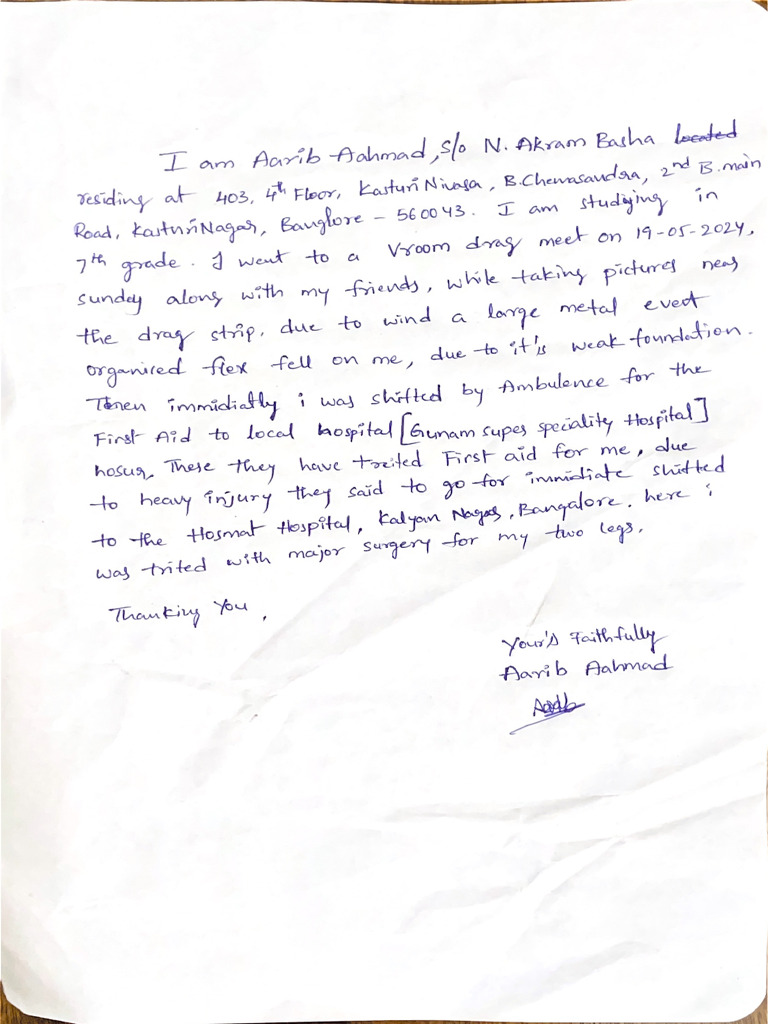 I am Aarib Aahmad, S/o N. Akram Basha located
residing at 403, 4th Floor, Kasturi Nivasa, B. Chennasandra, 2nd B. main
Road, Kasturi Nagar, Banglore - 560043. I am studying in
7th grade. I went to a Vroom drag meet on 19-05-2024,
sunday along with my friends, while taking pictures near
the drag strip, due to wind a large metal evert
organised flex fell on me, due to it's weak foundation.
Then immidiatly i was shifted by Ambulence for the
First Aid to local hospital [Gunam super speciality Hospital]
hosur, There they have treited First aid for me, due
to heavy injury they said to go for immidiate shifted
to the Hosmat Hospital, Kalyan Nagar, Bangalore. here i
was trited with major surgery for my two legs.
Thanking You,
Your's Faithfully
Aarib Aahmad